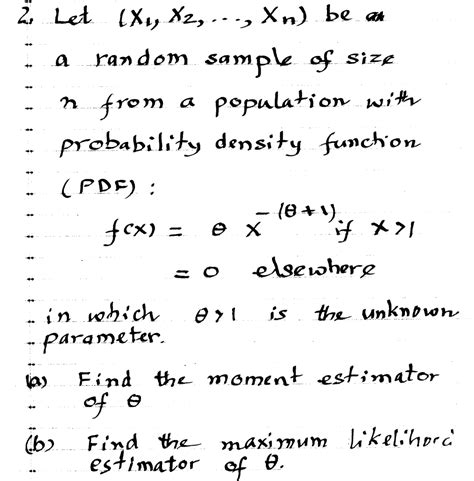 2. Let (X₁, X₂, ..., Xₙ) be a
a random sample of size
n from a population with
probability density function
(PDF) :
f(x) = θ x^-(θ+1) if x>1
= 0 elsewhere
in which θ>1 is the unknown
parameter.
(a) Find the moment estimator
of θ
(b) Find the maximum likelihord
estimator of θ.